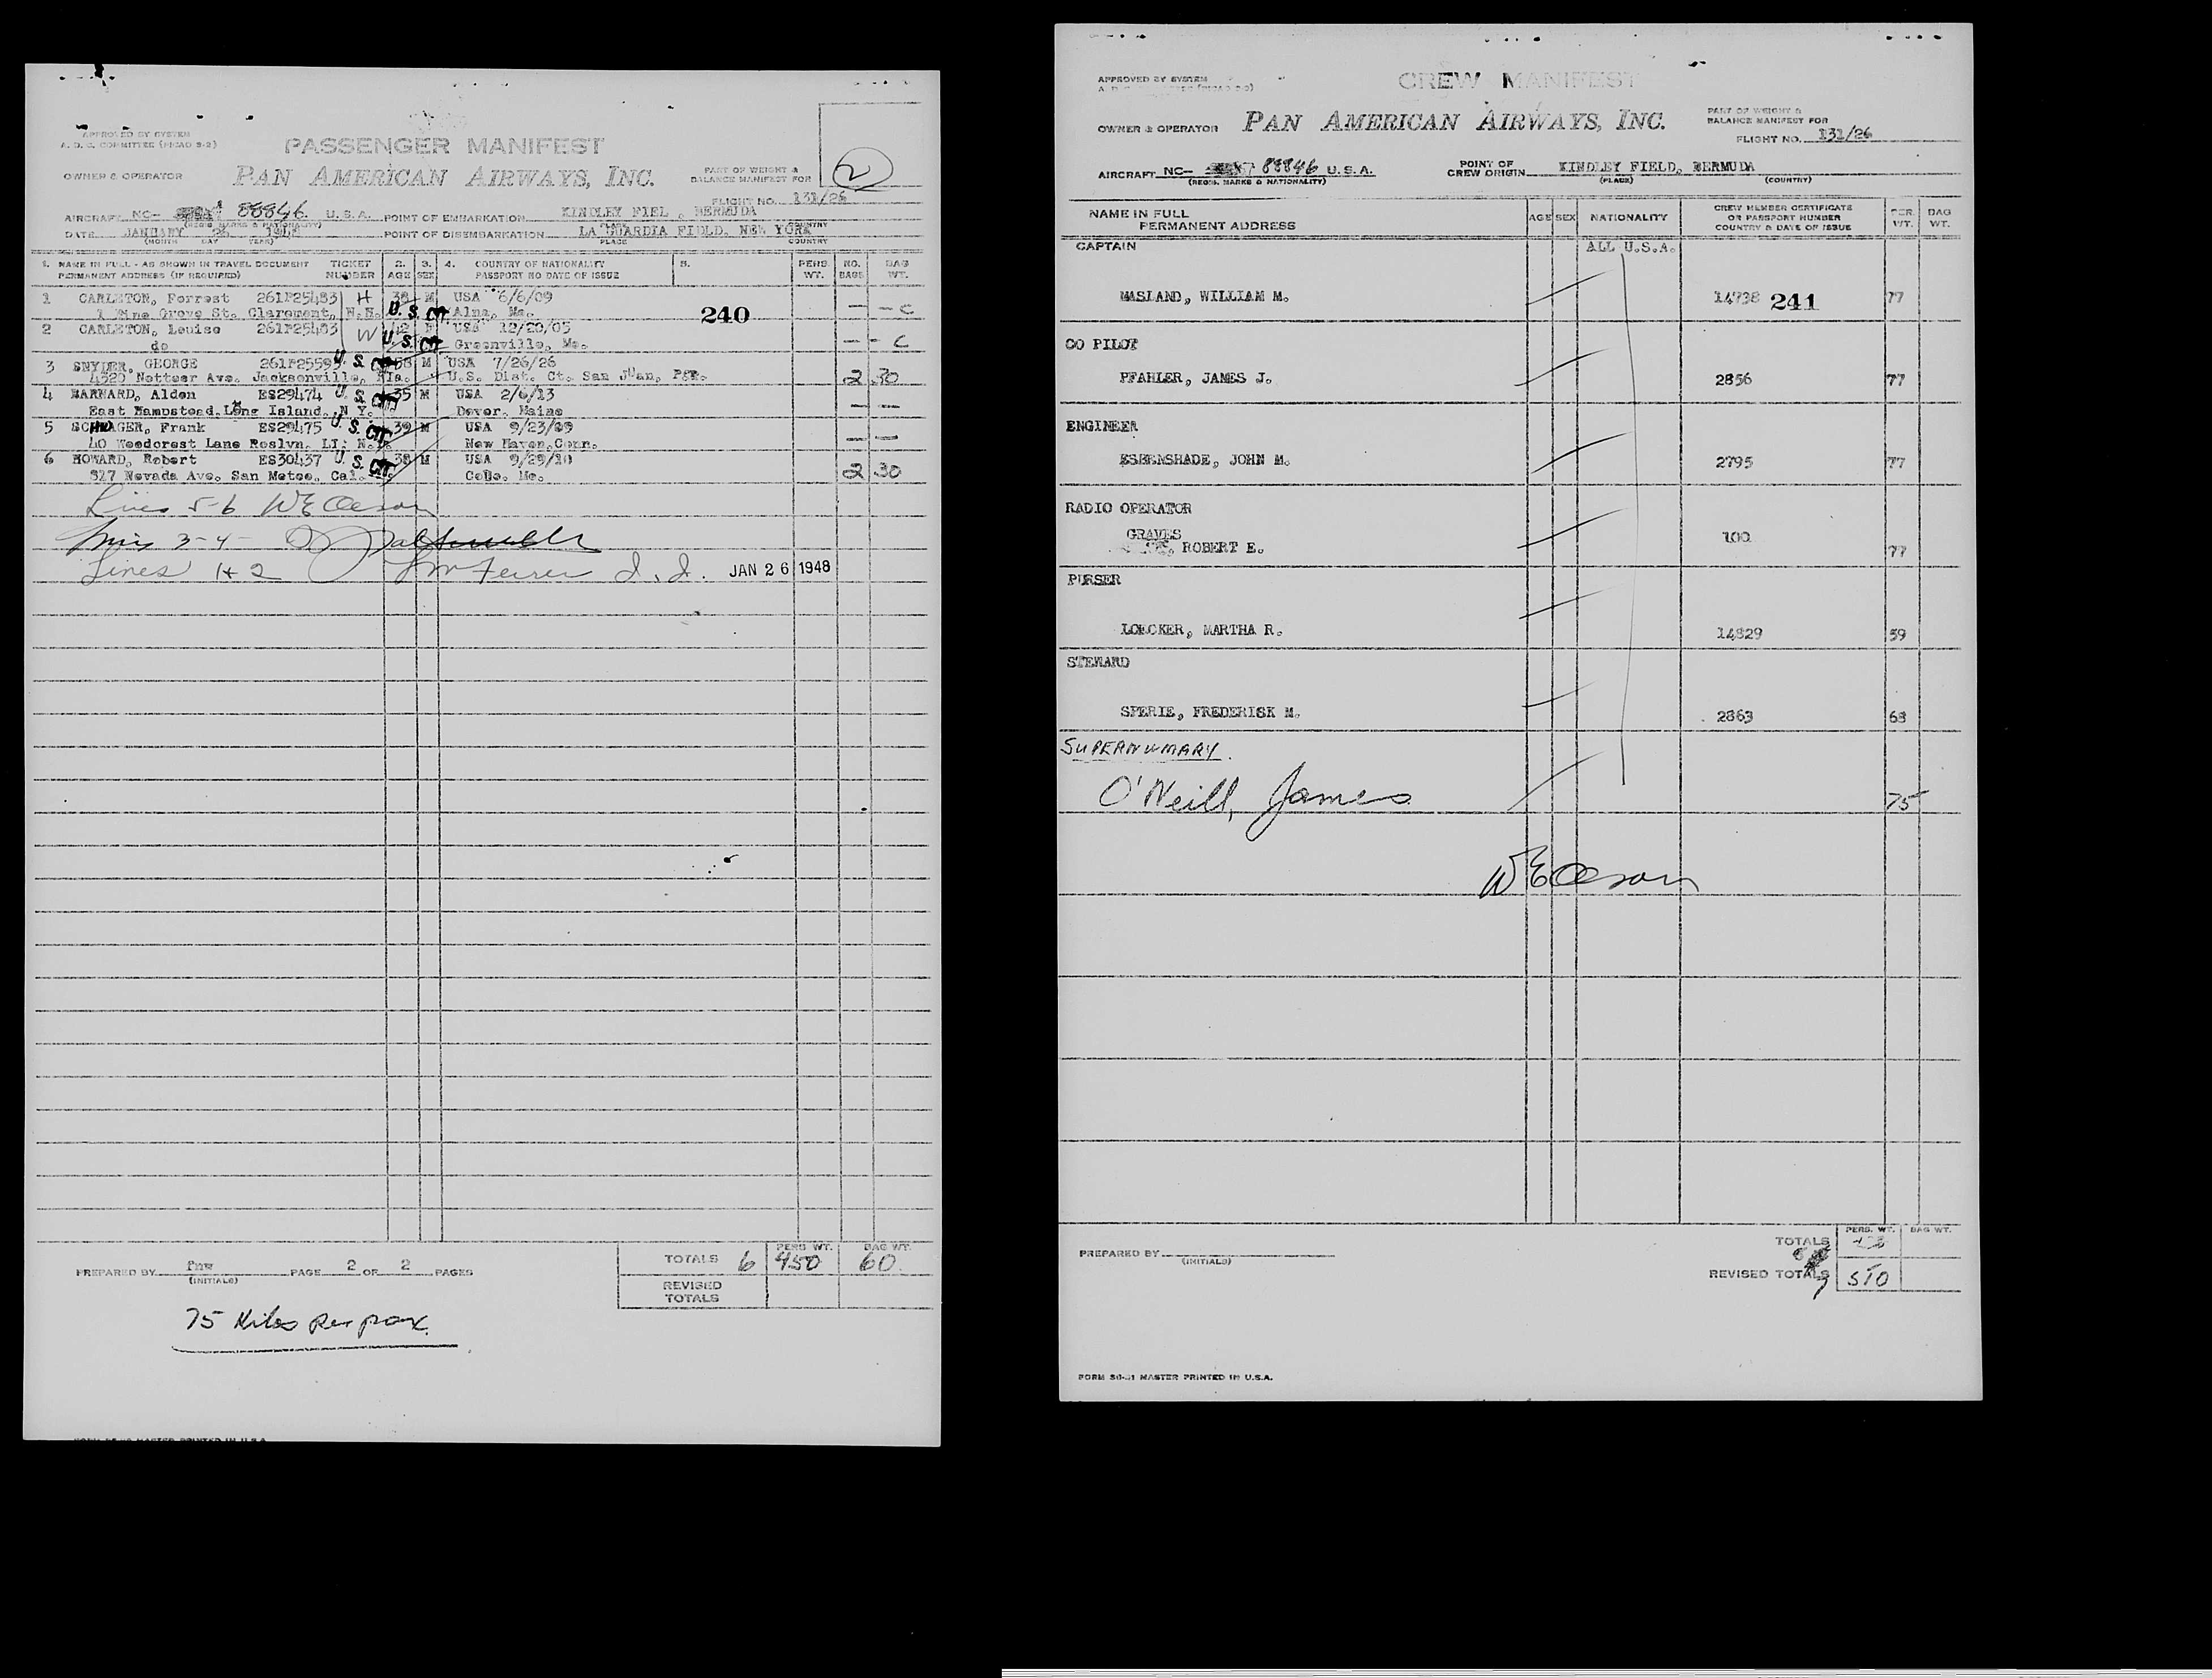 APPROVED BY SYSTEM
PASSENGER MANIFEST
OWNER & OPERATOR PAN AMERICAN AIRWAYS, INC.
PART OF WEIGHT &
BALANCE MANIFEST FOR
FLIGHT NO. 131/26
2
AIRCRAFT NC- 88846 U.S.A. POINT OF EMBARKATION KINDLEY FIEL , BERMUDA
(REGIS. MARKS & NATIONALITY)
DATE JANUARY 26 1948 POINT OF DISEMBARKATION LA GUARDIA FIELD, NEW YORK
(MONTH DAY YEAR) PLACE COUNTRY
1. NAME IN FULL - AS SHOWN IN TRAVEL DOCUMENT TICKET 2. 3. 4. COUNTRY OF NATIONALITY 5. PERS. NO. BAG
PERMANENT ADDRESS (IF REQUIRED) NUMBER AGE SEX PASSPORT NO DATE OF ISSUE WT. BAGS WT.
1 CARLETON, Forrest 261P25483 H 38 M USA 6/6/09
1 Pine Grove St. Claremont, N.H. U.S. CIT Alna, Me. 240 — — C
2 CARLETON, Louise 261P25483 W 42 F USA 12/20/05
do U.S. CIT Greenville, Me. — — C
3 SNYDER, GEORGE 261P25599 U.S. CIT 58 M USA 7/26/26
4520 Notteer Ave. Jacksonville, Fla. U.S. Dist. Ct. San Juan, P.R. 2 30
4 BARNARD, Alden ES29474 U.S. CIT 35 M USA 2/6/13
East Hampstead, Long Island, N Y. Dover, Maine — —
5 SCHWAGER, Frank ES29475 U.S. CIT 39 M USA 9/23/09
40 Woodcrest Lane Roslyn, LI. N.Y. New Haven, Conn. — —
6 HOWARD, Robert ES30437 U.S. CIT 38 M USA 9/29/10
317 Nevada Ave. San Mateo, Cal. 2 30
Lines 5-6 WE Oleson
3-4-
Lines 1 & 2 JAN 26 1948
PREPARED BY fnw PAGE 2 OF 2 PAGES
(INITIALS)
PERS WT. BAG WT.
TOTALS 6 450 60.
REVISED
TOTALS
75 Kilos per pax.
APPROVED BY SYSTEM
CREW MANIFEST
OWNER & OPERATOR PAN AMERICAN AIRWAYS, INC.
PART OF WEIGHT &
BALANCE MANIFEST FOR
FLIGHT NO. 131/26
AIRCRAFT NC- 88846 U.S.A. POINT OF CREW ORIGIN KINDLEY FIELD, BERMUDA
(REGIS. MARKS & NATIONALITY) (PLACE) (COUNTRY)
NAME IN FULL
PERMANENT ADDRESS
AGE SEX NATIONALITY
CREW MEMBER CERTIFICATE
OR PASSPORT NUMBER
COUNTRY & DATE OF ISSUE
PER. WT. BAG WT.
CAPTAIN ALL U.S.A.
MASLAND, WILLIAM M. 14738 241 77
CO PILOT
PFAHLER, JAMES J. 2856 77
ENGINEER
ESBENSHADE, JOHN M. 2795 77
RADIO OPERATOR
GRAVES
ROBERT E. 100 77
PURSER
LOECKER, MARTHA R. 14829 59
STEWARD
SPERIE, FREDERISK M. 2863 68
SUPERNUMARY.
O'Neill, James 75
WE Oleson
PREPARED BY
(INITIALS)
PERS. WT. BAG WT.
TOTALS
REVISED TOTALS 7 510
FORM SO-31 MASTER PRINTED IN U.S.A.